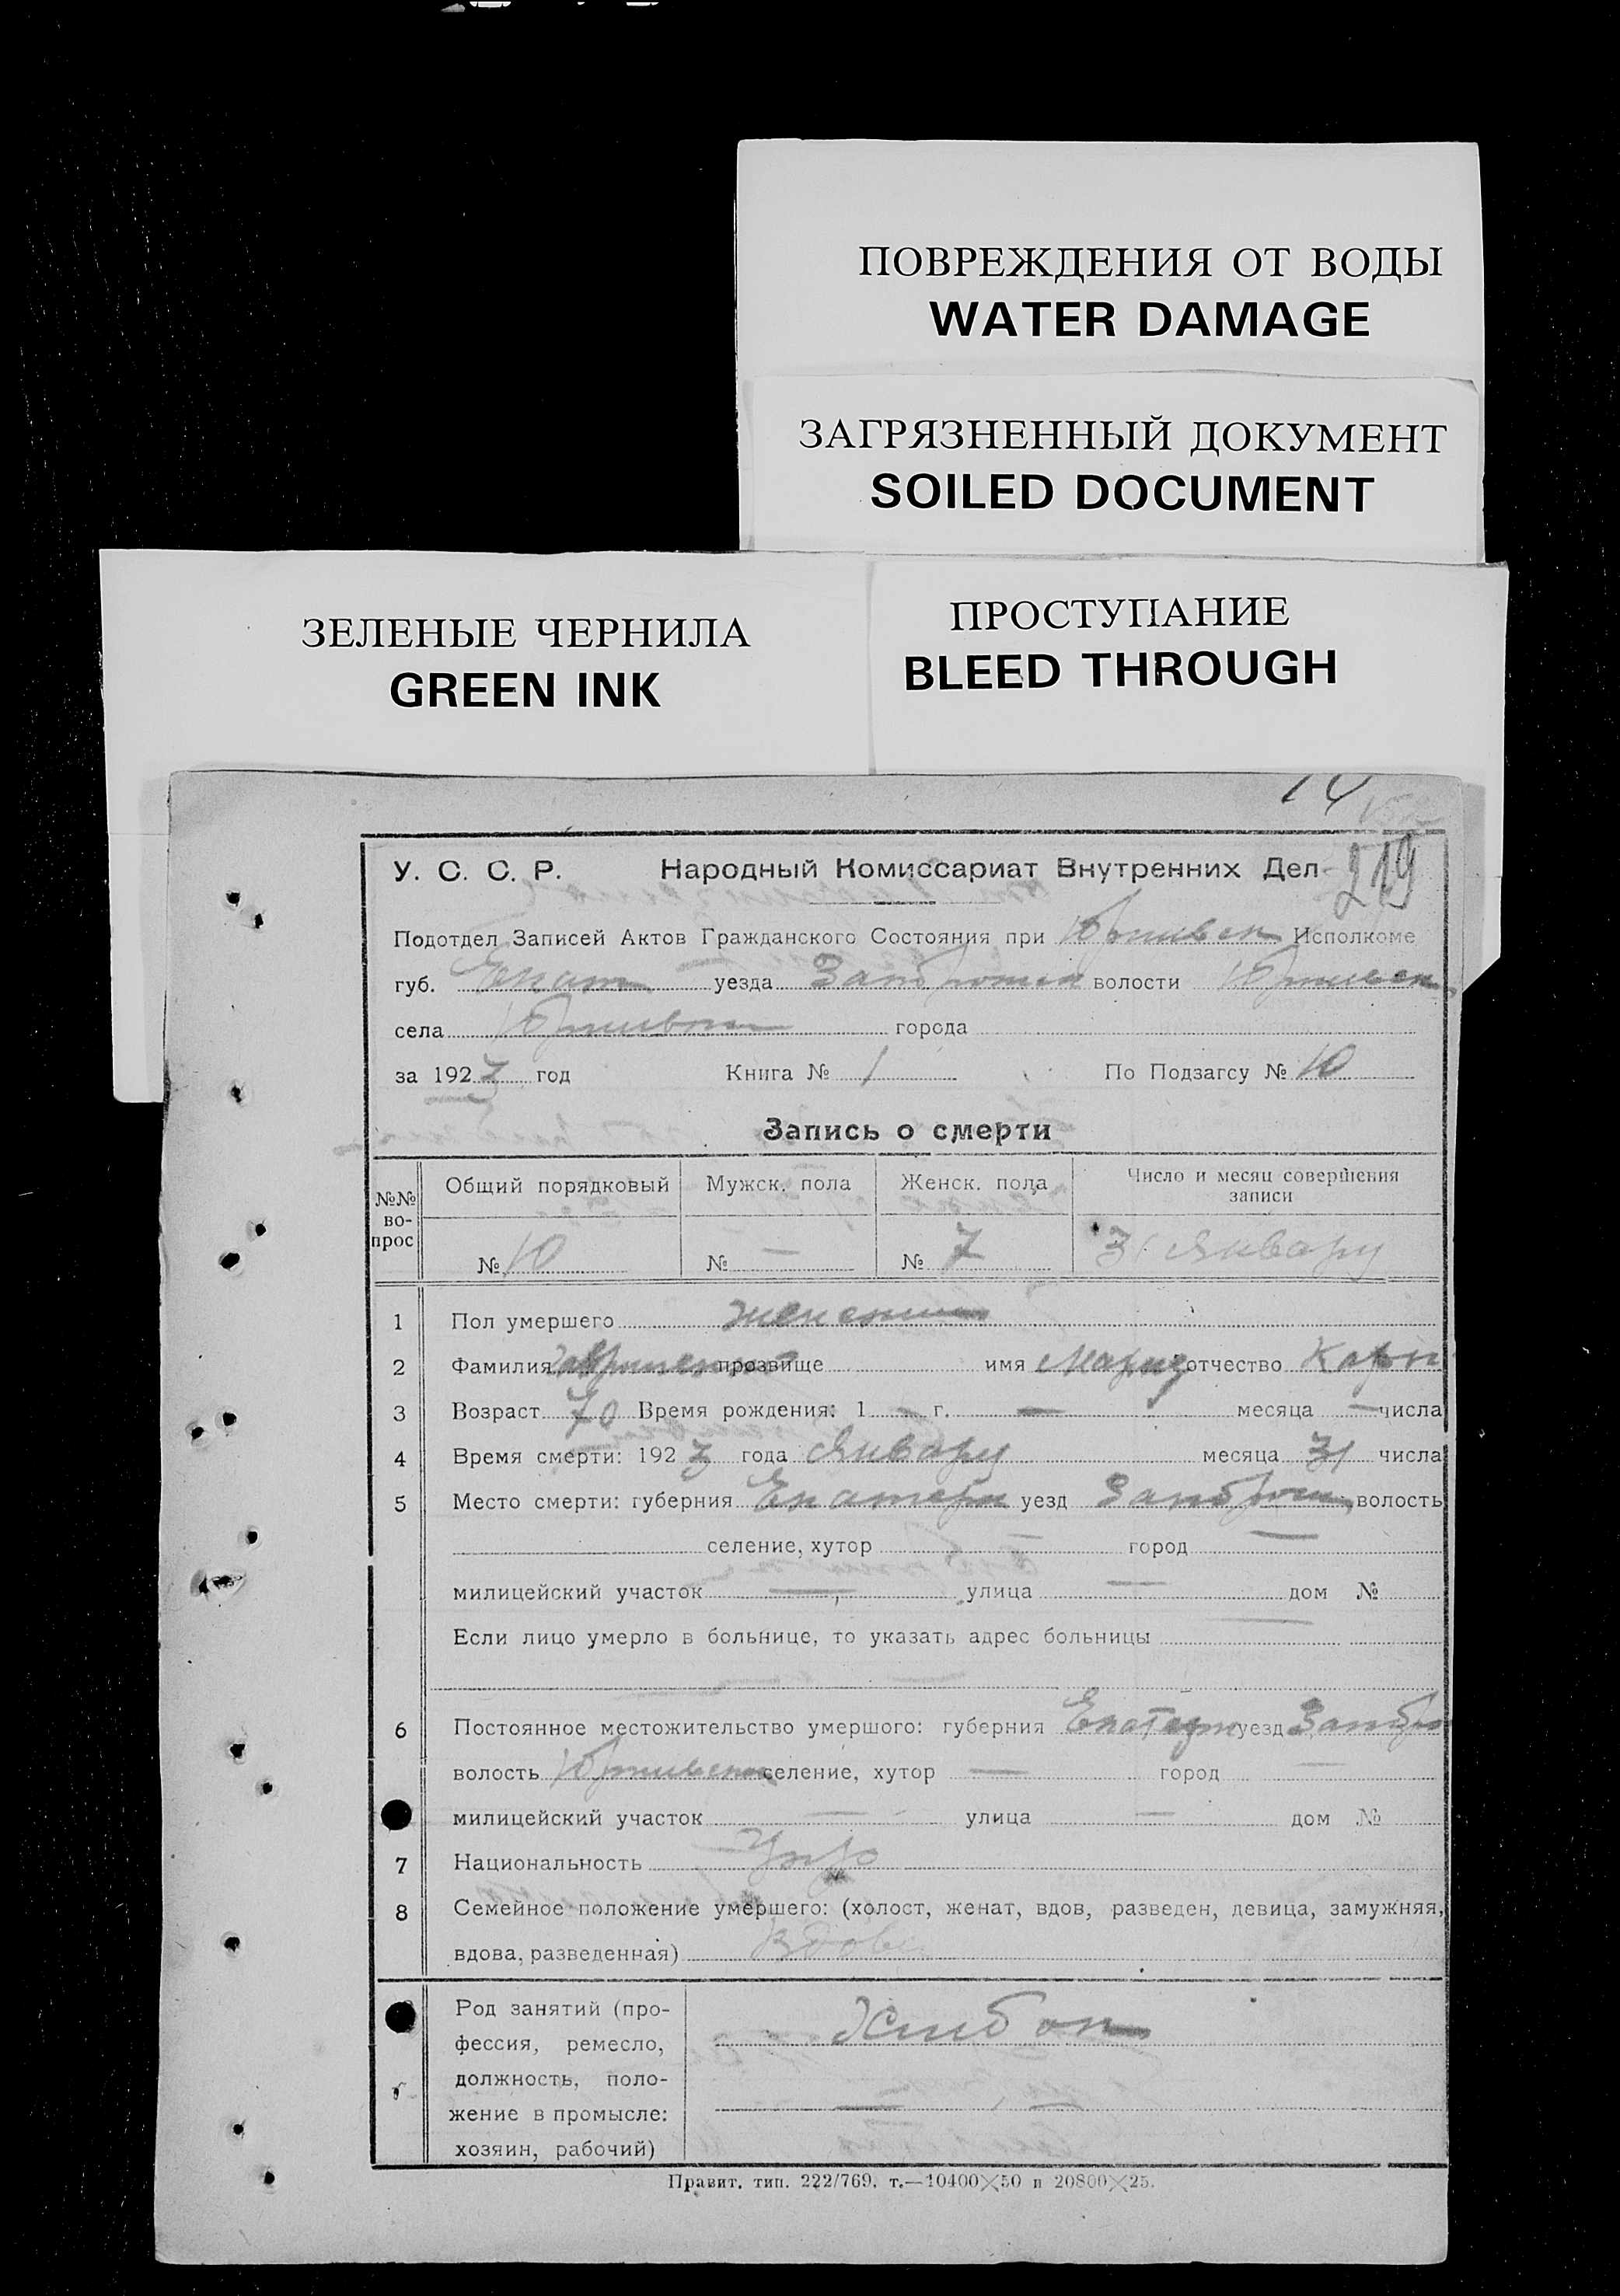 ПОВРЕЖДЕНИЯ ОТ ВОДЫ
WATER DAMAGE
ЗАГРЯЗНЕННЫЙ ДОКУМЕНТ
SOILED DOCUMENT
ЗЕЛЕНЫЕ ЧЕРНИЛА
GREEN INK
ПРОСТУПАНИЕ
BLEED THROUGH
14
У. С. С. Р. Народный Комиссариат Внутренних Дел
219
Подотдел Записей Актов Гражданского Состояния при Исполкоме
губ. Екат уезда волости
села города
за 1923 год Книга № 1 По Подзагсу № 10
Запись о смерти
№№ вопрос
Общий порядковый Мужск. пола Женск. пола Число и месяц совершения записи
№ 10 № — № 7 31 Январу
1 Пол умершего
2 Фамилия прозвище имя Мария отчество Карп
3 Возраст 70 Время рождения: 1 — г. — месяца — числа
4 Время смерти: 1923 года Январу месяца 31 числа
5 Место смерти: губерния Екатери уезд волость
селение, хутор — город —
милицейский участок — улица — дом №
Если лицо умерло в больнице, то указать адрес больницы —
6 Постоянное местожительство умершого: губерния Екатери уезд
волость селение, хутор — город —
милицейский участок — улица — дом №
7 Национальность Укр
8 Семейное положение умершего: (холост, женат, вдов, разведен, девица, замужняя,
вдова, разведенная) Вдова
Род занятий (про-
фессия, ремесло,
должность, поло-
жение в промысле:
хозяин, рабочий)
Хлиб
Правит. тип. 222/769. т.—10400×50 и 20800×25.